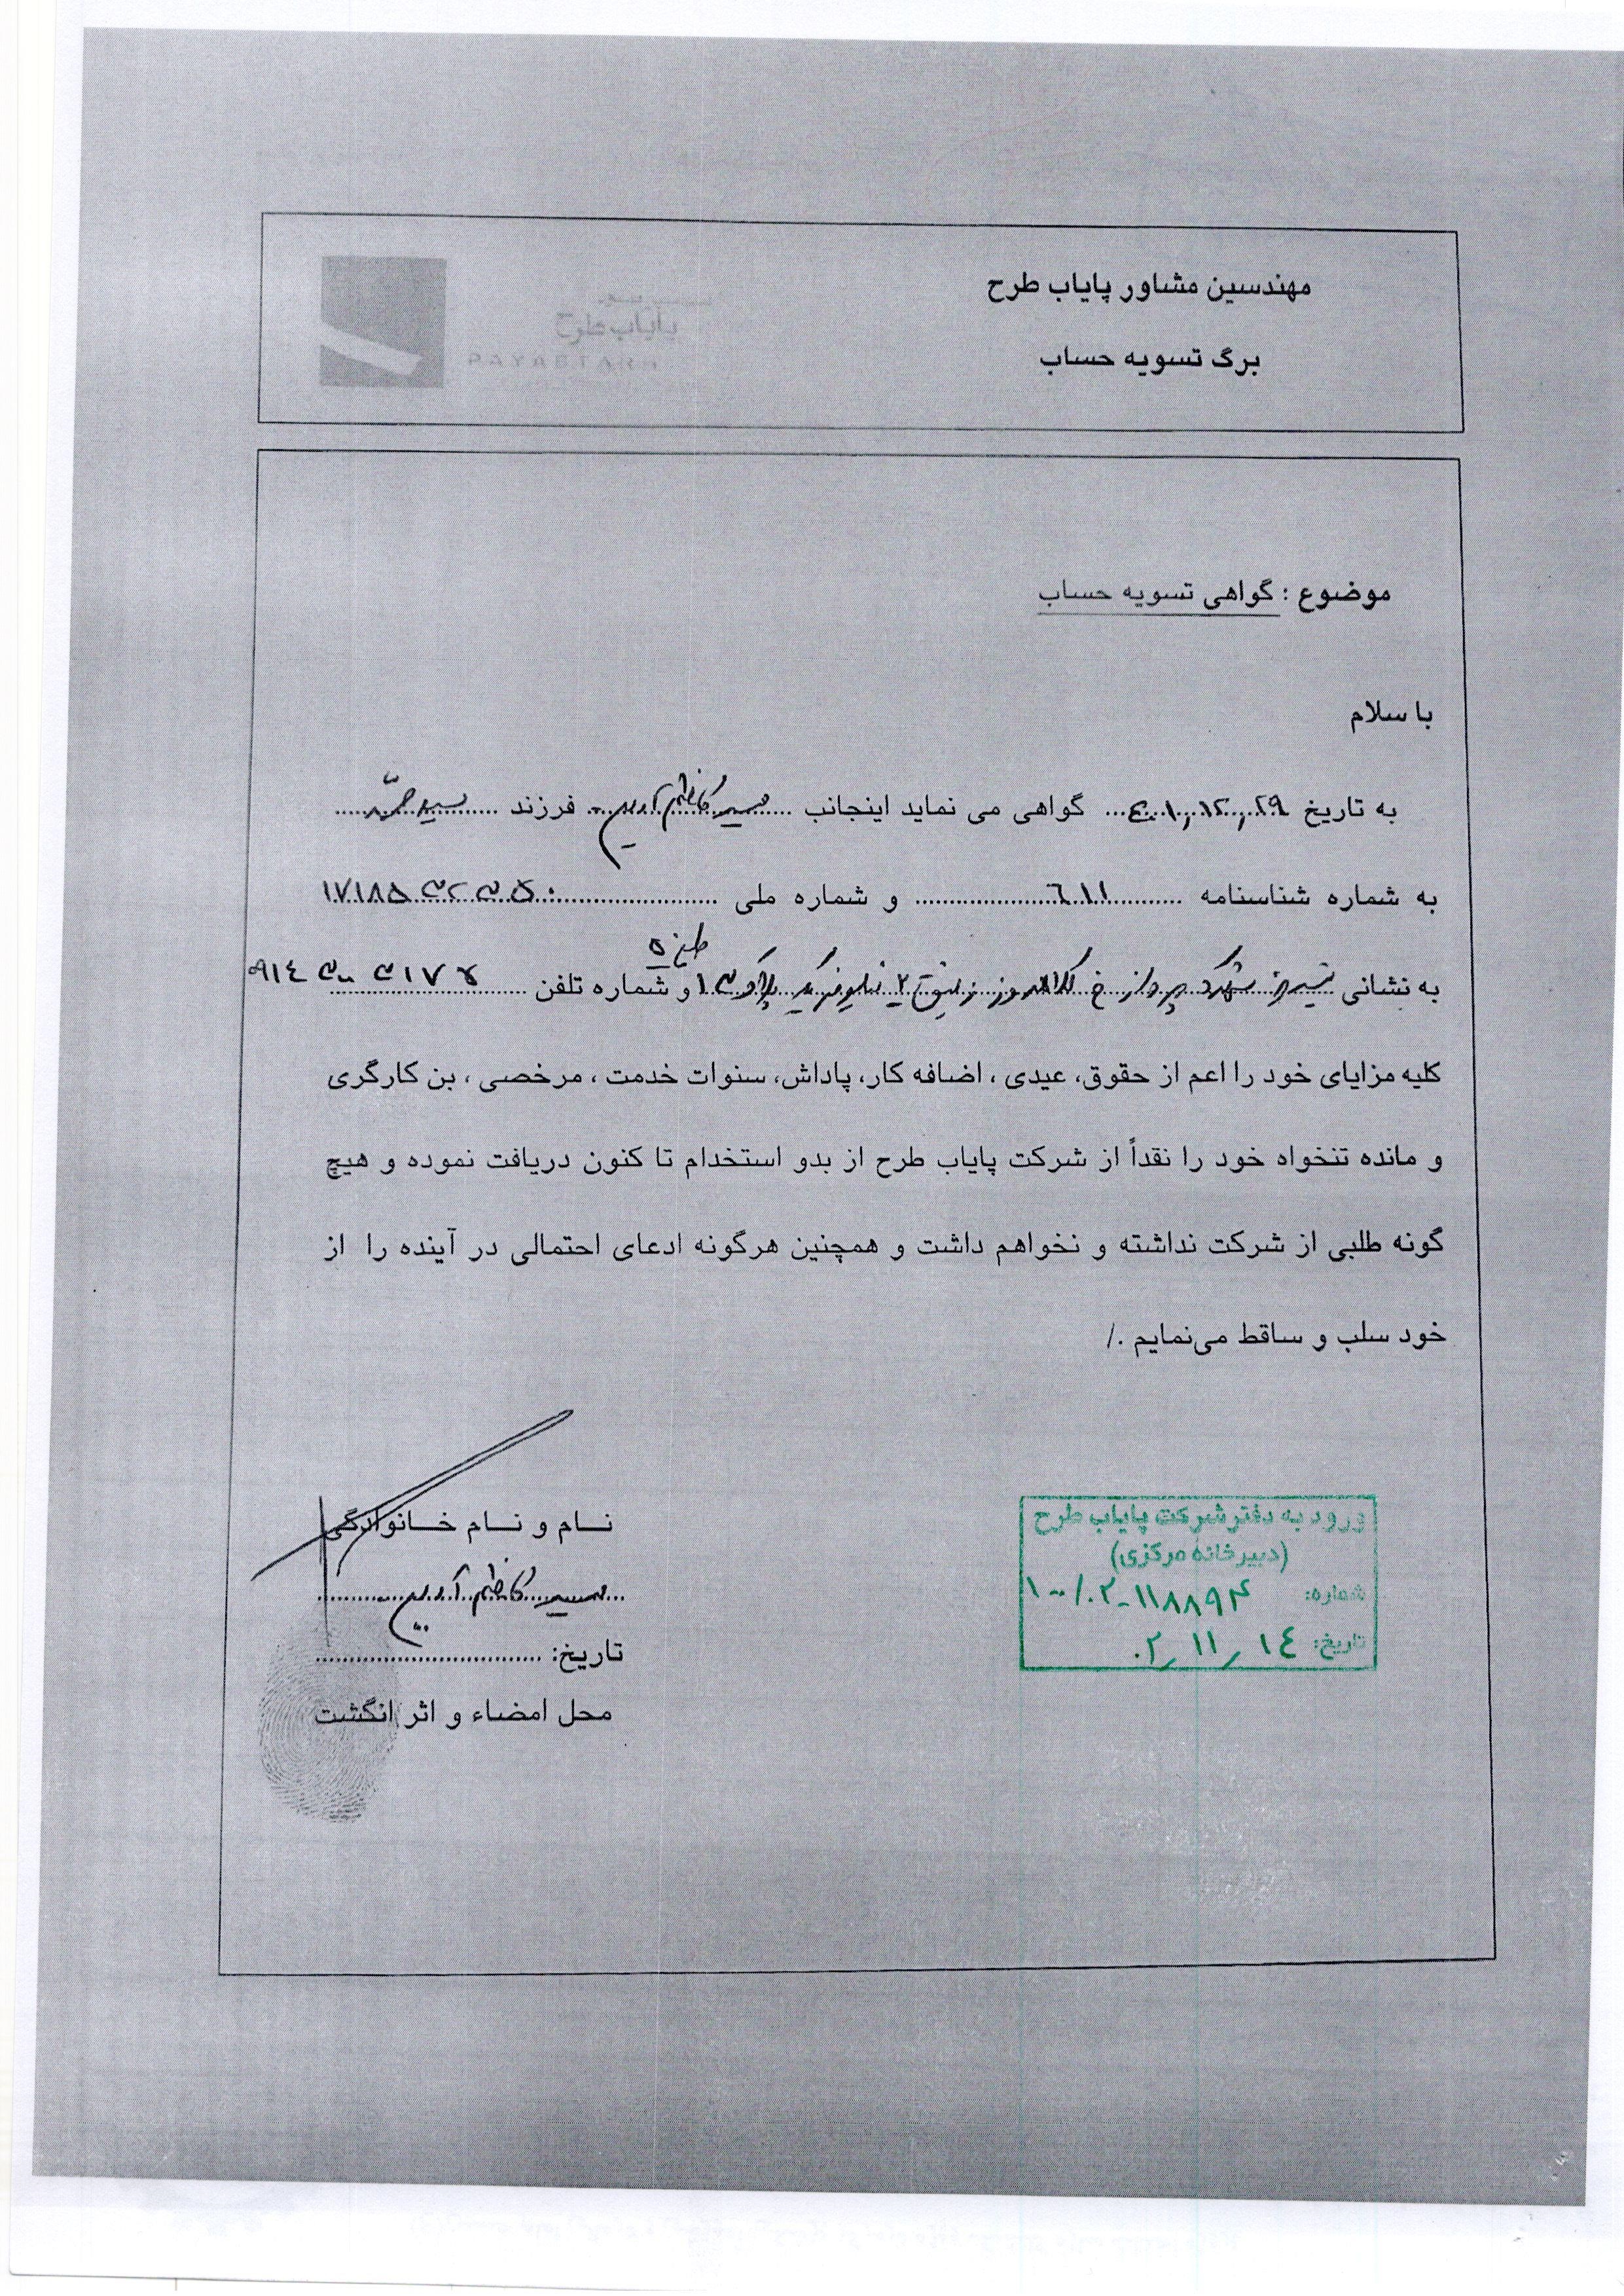 مهندسین مشاور پایاب طرح
برگ تسویه حساب
پایاب طرح
PAYABTARH
موضوع : گواهی تسویه حساب
با سلام
به تاریخ ۱۴۰۱,۱۲,۲۹ گواهی می نماید اینجانب سید کاظم فرزند سید
به شماره شناسنامه ۶۱۱ و شماره ملی
به نشانی تبریز شهرک پرواز خ گلها زنبق ۲ پلاک ۱ و شماره تلفن
کلیه مزایای خود را اعم از حقوق، عیدی ، اضافه کار، پاداش، سنوات خدمت ، مرخصی ، بن کارگری
و مانده تنخواه خود را نقداً از شرکت پایاب طرح از بدو استخدام تا کنون دریافت نموده و هیچ
گونه طلبی از شرکت نداشته و نخواهم داشت و همچنین هرگونه ادعای احتمالی در آینده را از
خود سلب و ساقط می‌نمایم ./
نام و نام خانوادگی
سید کاظم
تاریخ:
محل امضاء و اثر انگشت
ورود به دفتر شرکت پایاب طرح
(دبیرخانه مرکزی)
شماره: ۱۰۰/۰۲-۱۱۸۸۹۴
تاریخ: ۰۲/۱۱/۱۴